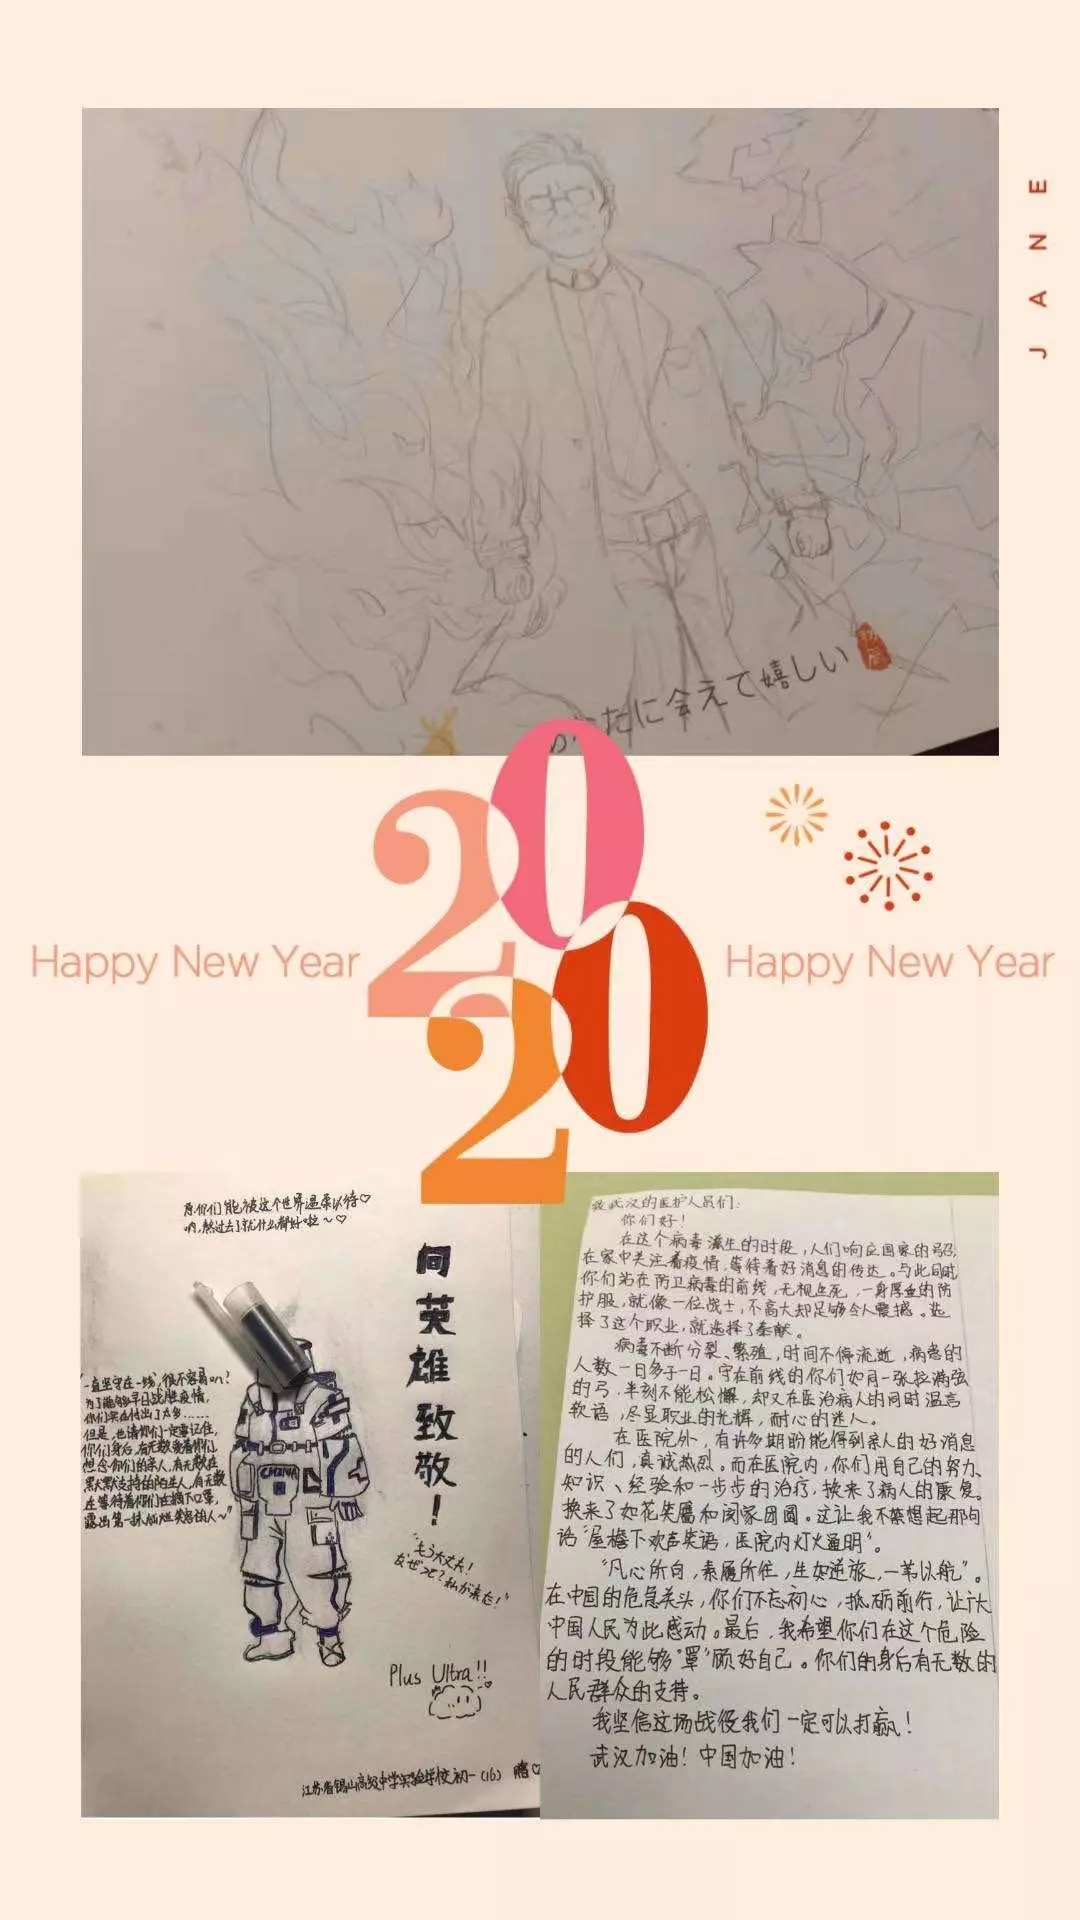 JANE
なたに会えて嬉しい
2020
Happy New Year
Happy New Year
愿你们能被这个世界温柔以待♡
呐,熬过去了就什么都好啦~♡
向英雄致敬!
"一直坚守在一线,很不容易吧?
为了能够早日战胜疫情,
你们实在付出了太多……
但是,也请你们一定要记住,
你们身后,有无数爱着你们,
想念你们的亲人,有无数在
默默支持的陌生人,有无数
在等待着你们在摘下口罩,
露出第一抹灿烂笑容的人~"
CHINA
"もう大丈夫!
なぜって?私が来た!"
Plus Ultra!!
江苏省锡山高级中学实验学校初一(16)
致武汉的医护人员们:
你们好!
在这个病毒滋生的时段,人们响应国家的号召,
在家中关注着疫情,等待着好消息的传达。与此同时
你们站在防卫病毒的前线,无视生死,一身厚重的防
护服,就像一位战士,不高大却足够令人震撼。选
择了这个职业,就选择了奉献。
病毒不断分裂、繁殖,时间不停流逝,病患的
人数一日多于一日。守在前线的你们如同一张拉满弦
的弓,半刻不能松懈,却又在医治病人的同时温言
软语,尽显职业的光辉,耐心的迷人。
在医院外,有许多期盼能得到亲人的好消息
的人们,真诚热烈。而在医院内,你们用自己的努力、
知识、经验和一步步的治疗,换来了病人的康复。
换来了如花笑靥和阖家团圆。这让我不禁想起那句
话"屋檐下欢声笑语,医院内灯火通明"。
"凡心所向,素履所往,生如逆旅,一苇以航"。
在中国的危急关头,你们不忘初心,砥砺前行,让广大
中国人民为此感动。最后,我希望你们在这个危险
的时段能够"罩"顾好自己。你们的身后有无数的
人民群众的支持。
我坚信这场战役我们一定可以打赢!
武汉加油!中国加油!